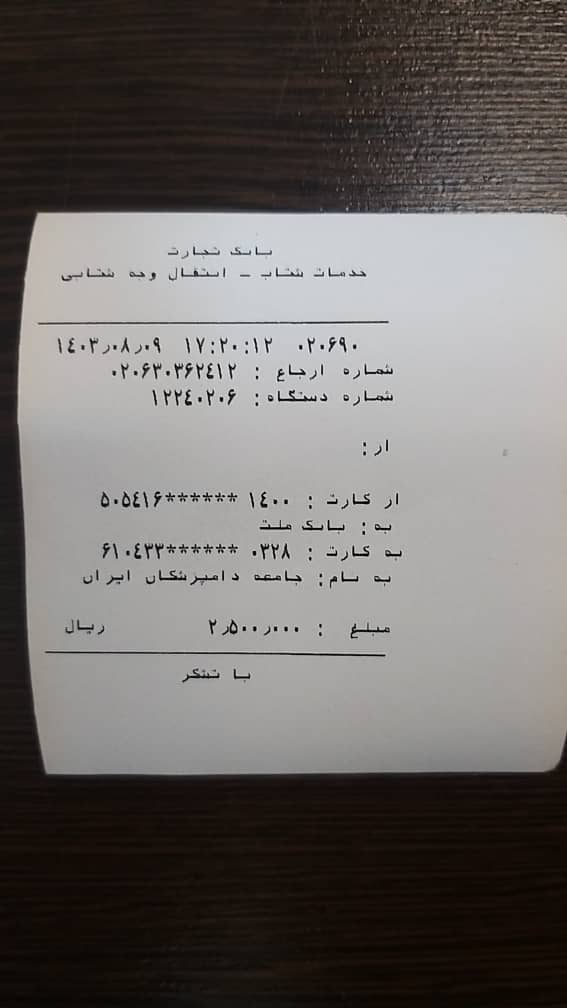 بانک تجارت
خدمات شتاب - انتقال وجه شتابی
۱۴۰۳٫۰۸٫۰۹ ۱۷:۲۰:۱۲ ۰۲۰۶۹۰
شماره ارجاع : ۰۲۰۶۳۰۳۶۲۴۱۲
شماره دستگاه: ۱۲۲۴۰۲۰۶
از:
از کارت : ۱۴۰۰ ******۵۰۵۴۱۶
به: بانک ملت
به کارت : ۰۳۲۸ ******۶۱۰۴۳۳
به نام: جامعه دامپزشکان ایران
مبلغ : ۲٫۵۰۰٫۰۰۰ ریال
با تشکر